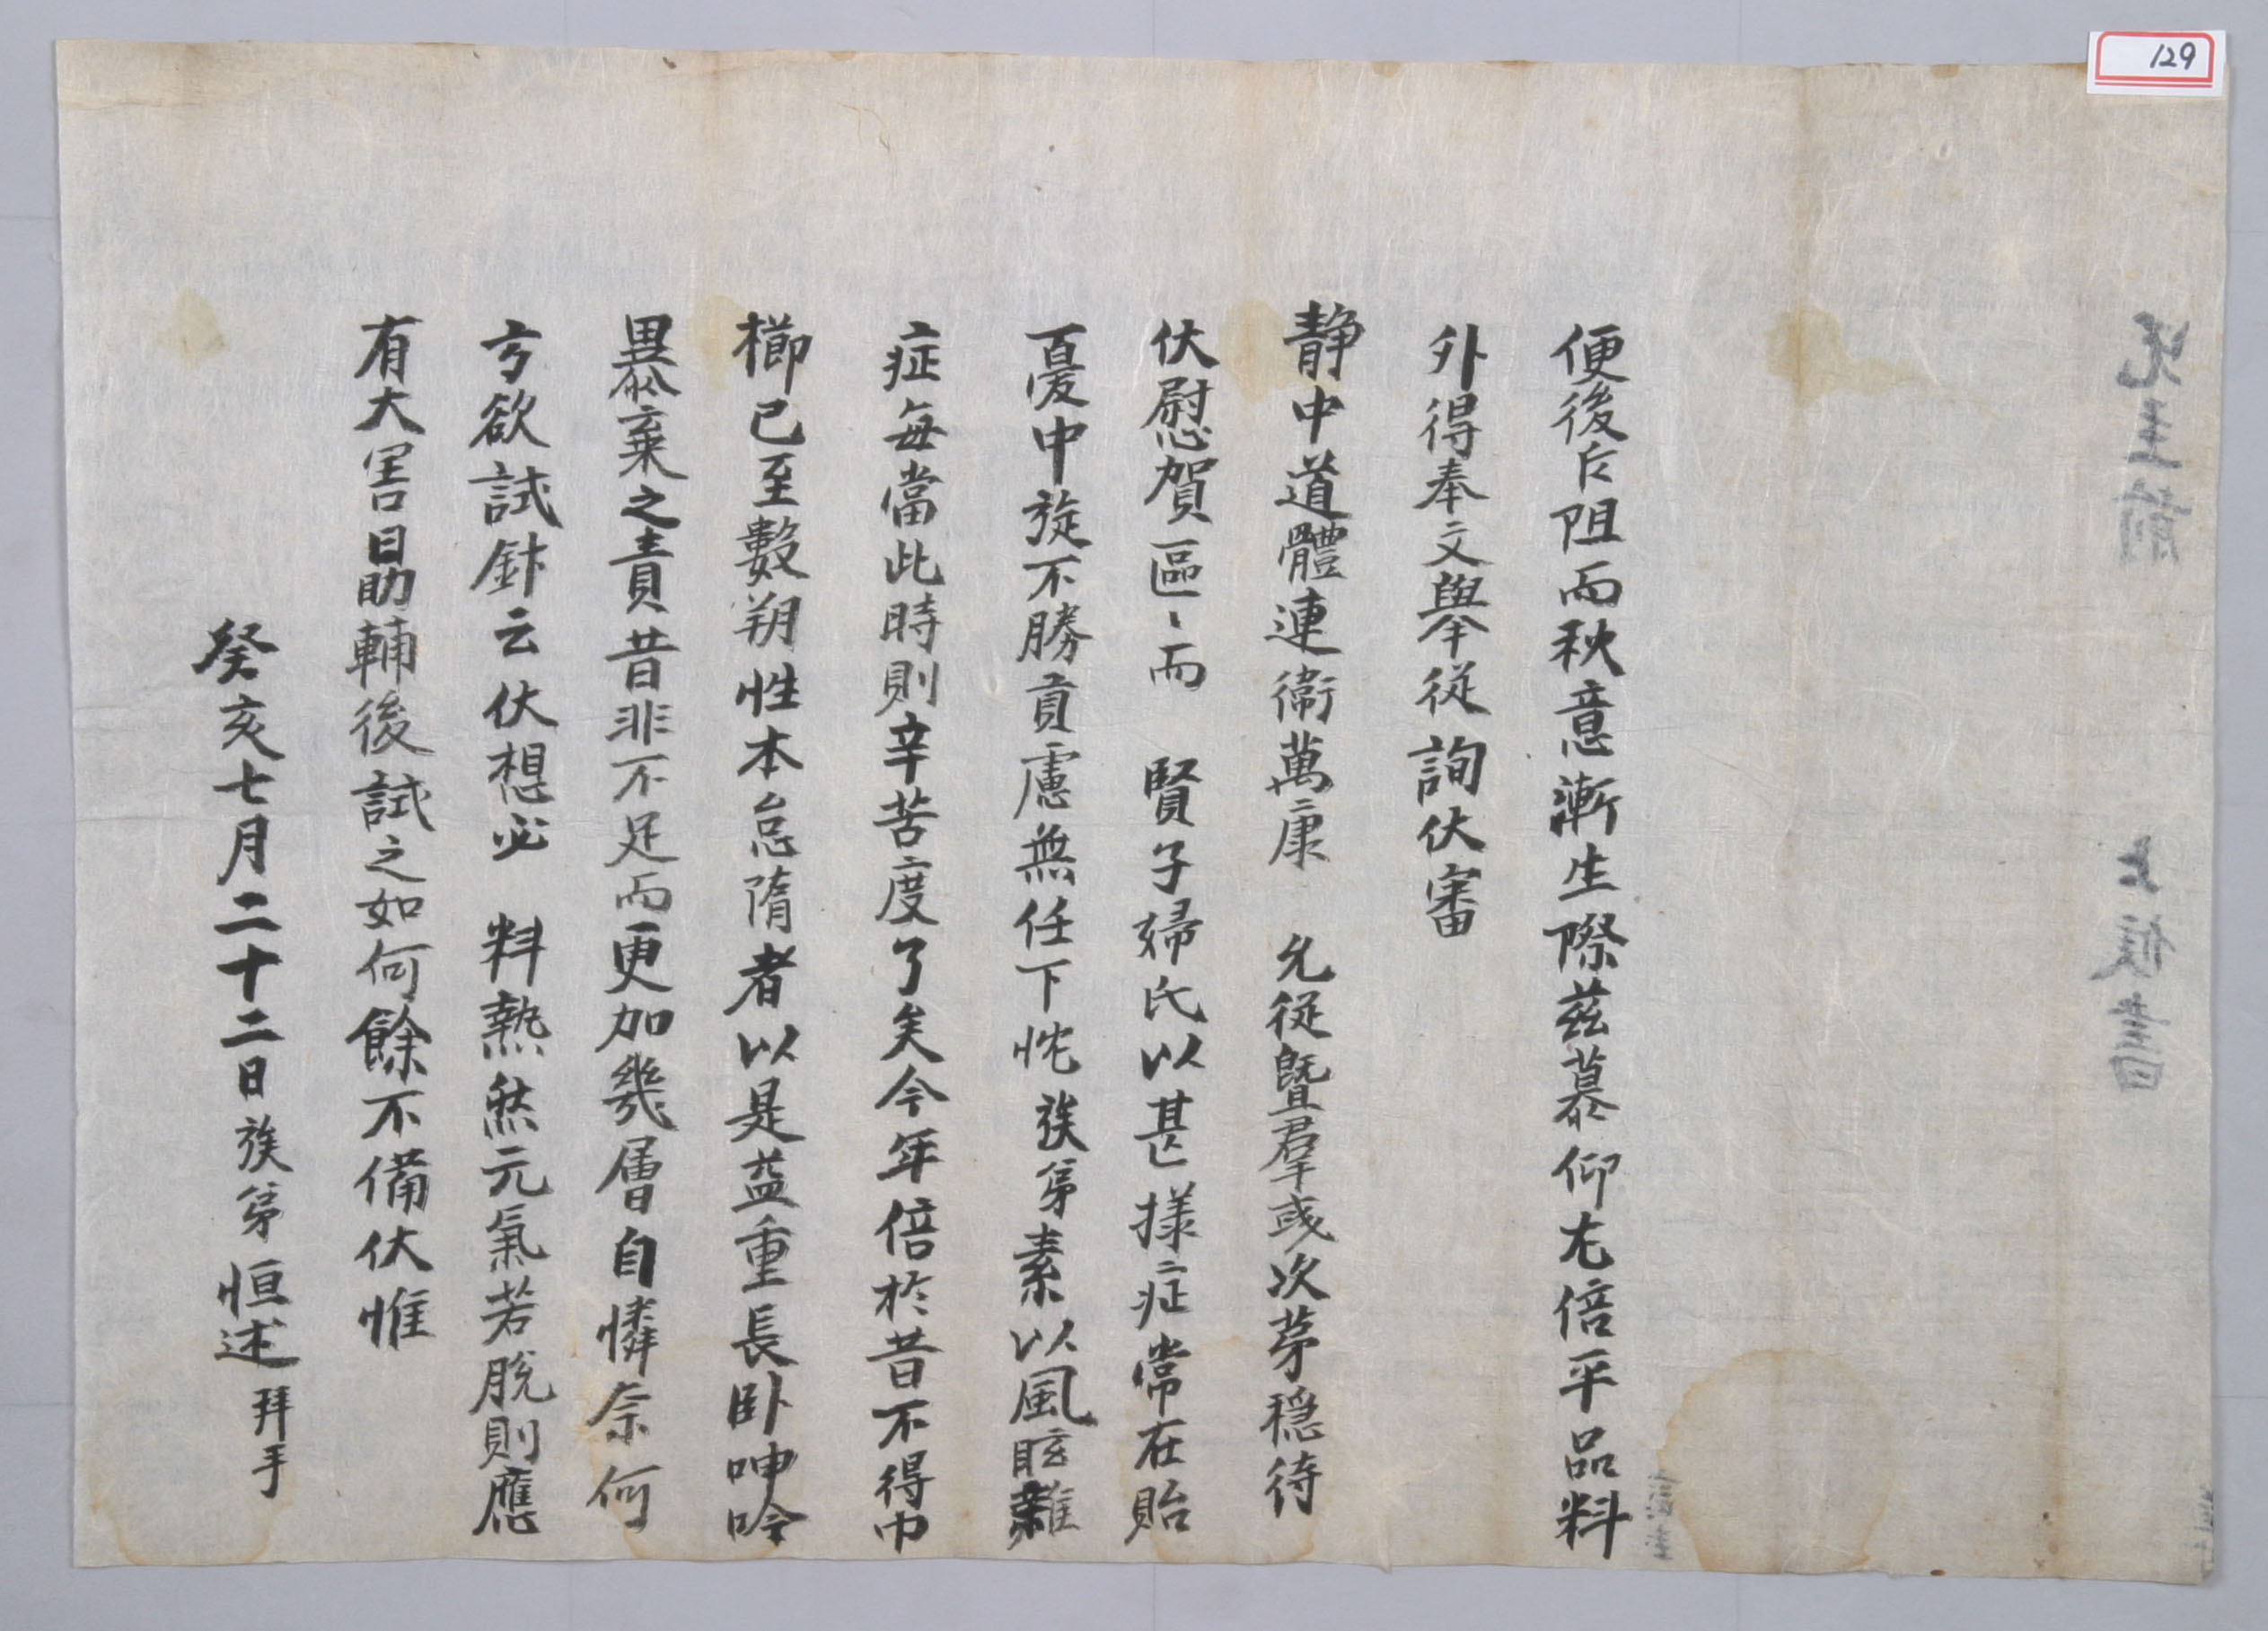 129
便後斤阻而秋意漸生際玆慕仰尤倍平品料
外得奉文與本從詢伏審
静中道體連衛萬康 允從曁羣彧次苐穩待
伏慰賀區〻而 賢子婦氏以甚㨾症常在貽
憂中旋不勝貢慮無任下忱族苐素以風眩雜
症每當此時則辛苦度了矣今年倍於昔不得巾
櫛已至數朔性本怠隋者以是益重長卧呻吟
異㬥棄之責昔非不足而更加幾層自憐奈何
方欲試針云伏想必 料熱然元氣若脫則應
有大害勗輔後試之如何餘不備伏惟
癸亥七月二十二日族苐恒述拜手
兄主前
上候書